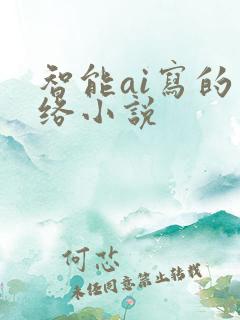 智能ai寫的
络小説
何芯
未经同意禁止转载